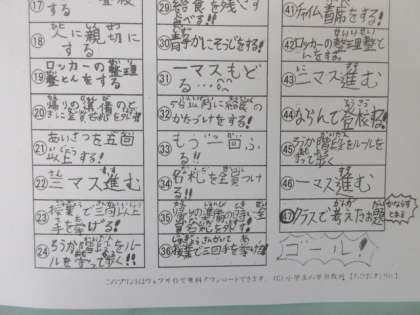 ⑰
する
⑱ 人に親切に
する
⑲ ロッカーの整理
整とんをする
⑳ 帰りの準備のと
㉑ あいさつを五回
以上する!
㉒ 三マス進む
㉓ 授業で三回以上
手を挙げる!
㉔ ろうか階段をルー
ルを守って歩く!!
㉙ 給食を残さず
食べる!!
㉚ 静かにそうじをする!
㉛ 一マスもど
る…
㉜ 分以内に給食の
かたづけをする!
㉝ もう一回ふ
る!!
㉞ 名札を全員つけ
る!!
㉟
㊱ 授業で三回手を挙げる!
㊶ チャイム着席をする!
㊷ ロッカーの整理整と
んをする。
㊸ 二マス進む
㊹ ならんで登校!
㊺ ろうか階段をルールを
守って歩く
㊻ 一マス進む
㊼ クラスで考えたお題
かならず
とまる
ゴール!
このプリントはウェブサイトで無料ダウンロードできます。(C)小学生の学習教材【ちびむすドリル】